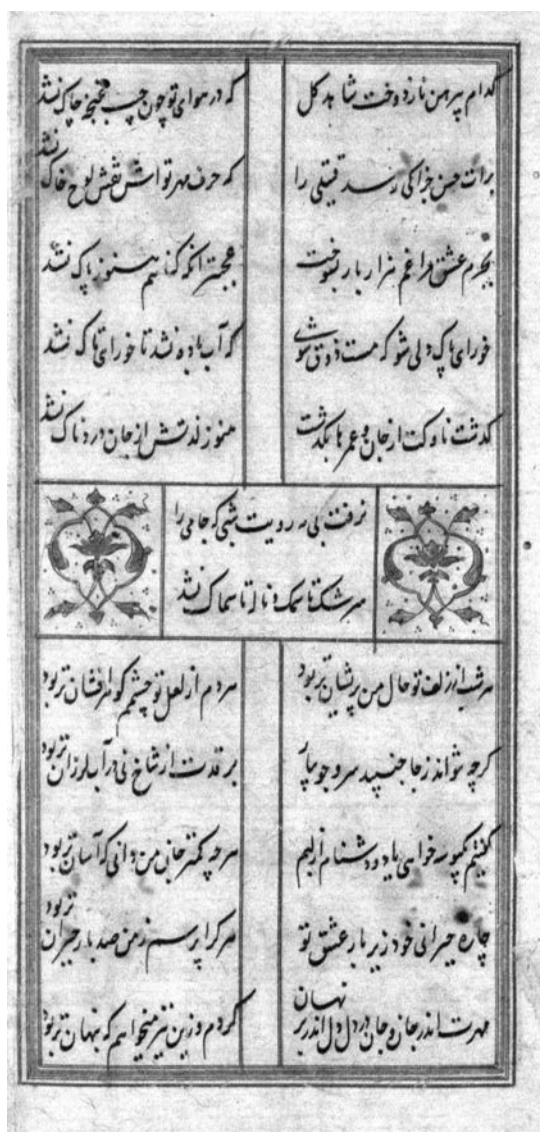 کدام پیرهن ناز دوخت شاهد گل
که در هوای تو چون جیب غنچه چاک نشد
برات حسن جزا کی رسد قتیلی را
که حرف مهر تو اش نقش لوح خاک نشد
بجرم عشق فراغم هزار بار بسوخت
عجبتر آنکه گناهم هنوز پاک نشد
خورای پاک دلی شو که مست ذوق شوی
که آب باده نشد تا خورای تاک نشد
گذشت ناوکت از جان و عمرها بگذشت
هنوز لذتش از جان دردناک نشد
نرفت بی مه رویت شبی که جامی را
سرشک تا سمک و ناله تا سماک نشد
هر شب از زلف تو حال من پریشان تر بود
هر دم از لعل تو چشمم گوهر افشان تر بود
گرچه نتواند ز جا جنبید سرو جویبار
بر قدت از شاخ نی در آب لرزان تر بود
گفتیم یکبوسه خواهی یا دو دشنام از لبم
هر چه کمتر جانی من دانی که آسان تر بود
چاره حیرانی خود زیر بار عشق تو
هر کرا پرسم ز من صد بار حیران تر بود
مهرت اندر جان و جان در دل دل اندر بر نهان
کردم و زین نیز میخواهم که پنهان تر بود